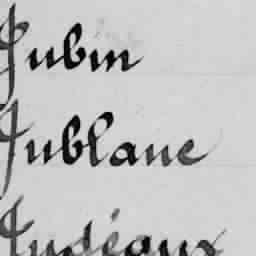 Jubin
Jublanc
Judéaux